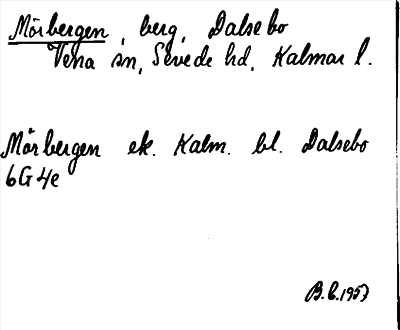 Mörbergen, berg, Dalsebo
Vena sn, Sevede hd, Kalmar l.
Mörbergen ek. Kalm. bl. Dalsebo
6G4e
B.L.1957